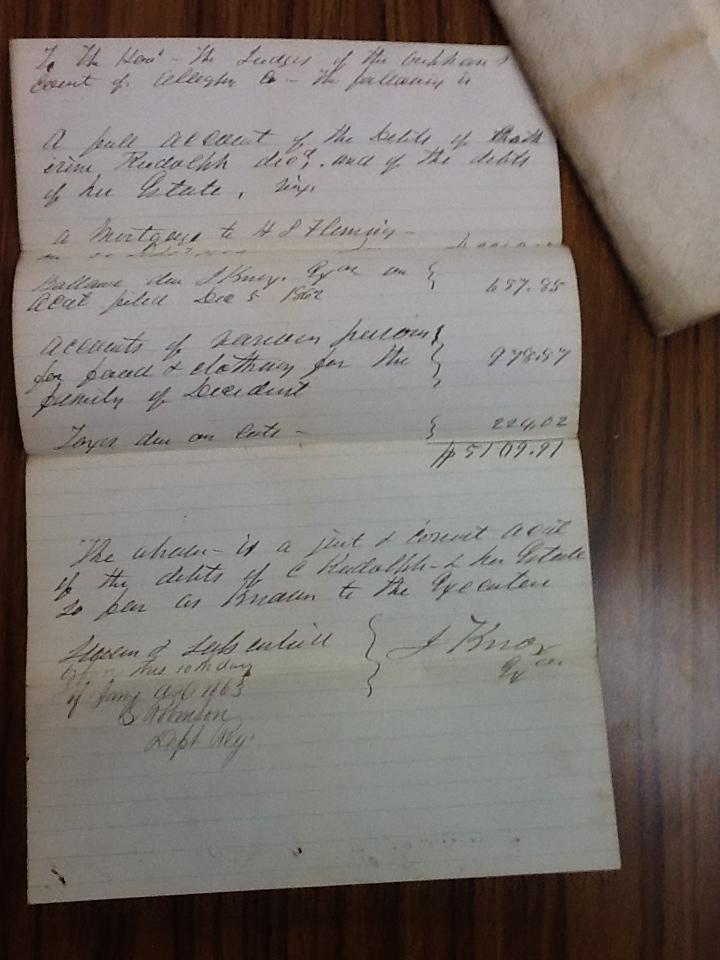 To the Honl - The Judges of the Orphans
Court of Alleghy Co - the following is
A full account of the Debts of Cath
erine Rudolph decd. and of the debts
of her Estate, viz.
a Mortgage to H S Fleming -
Ballance due J Knox. Exor on
Acct filed Dec 5 1862 { 657.85
accounts of various persons
for food & clothing for the { 978.57
family of Decedent
Taxes due on lots - { 224,02
$5109.91
The above - is a just & correct acct
of the debts of C Rudolph - & her Estate
so far as known to the Executor
Sworn & subscribed { J Knox
this 10th day Exor
of Jany AD 1863
B Robinson
Dept Reg.